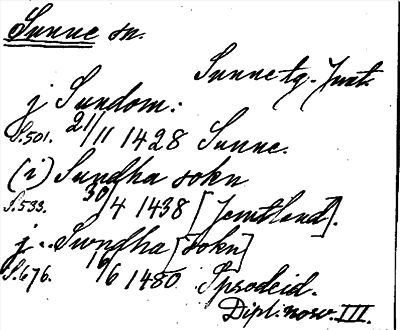 Sunne sn.
Sunne tg. Jmt.
j Sundom:
S.501. 21/11 1428 Sunne.
(i) Sundha sokn
S.533. 30/4 1438 [Jemtland].
j.. Swndha [sokn]
S.676. 16/6 1480
Dipl. norv. III.